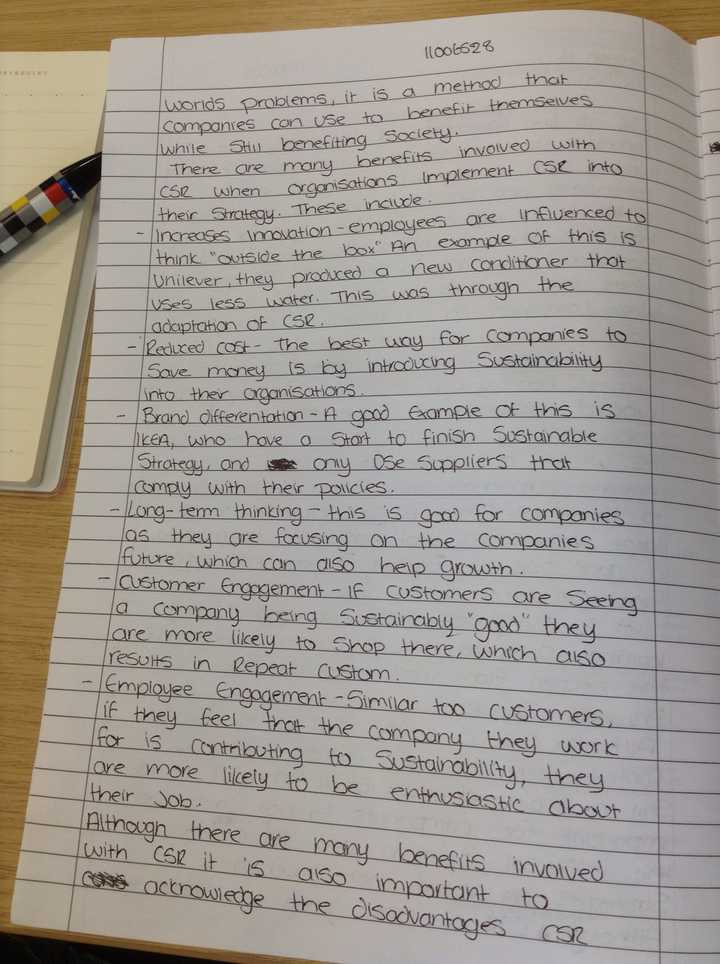 11006528
worlds problems, it is a method that
companies can use to benefit themselves
while still benefiting society.
There are many benefits involved with
CSR when organisations implement CSR into
their strategy. These include.
- Increases innovation - employees are influenced to
think "outside the box" An example of this is
Unilever, they produced a new conditioner that
uses less water. This was through the
adaptation of CSR.
- Reduced cost - The best way for companies to
save money is by introducing Sustainability
into their organisations.
- Brand differentation - A good example of this is
IKEA, who have a start to finish Sustainable
Strategy, and only use suppliers that
comply with their policies.
- Long-term thinking - this is good for companies
as they are focusing on the companies
future, which can also help growth.
- Customer Engagement - If customers are seeing
a company being Sustainably "good" they
are more likely to shop there, which also
results in Repeat custom.
- Employee Engagement - Similar too customers,
if they feel that the company they work
for is contributing to Sustainability, they
are more likely to be enthusiastic about
their job.
Although there are many benefits involved
with CSR it is also important to
acknowledge the disadvantages CSR